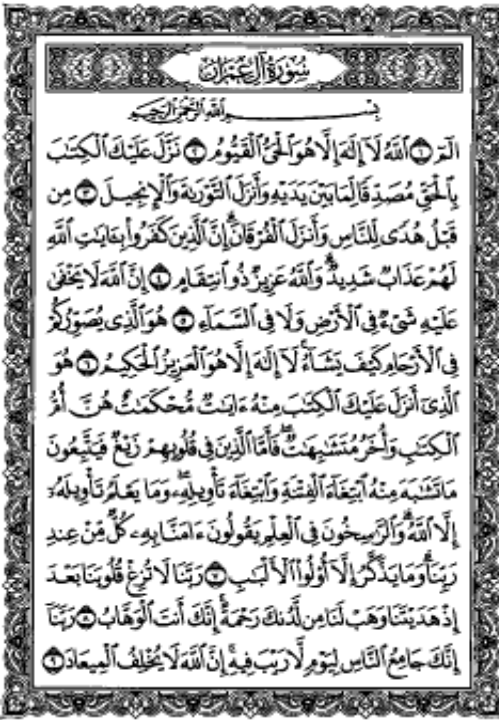 سُورَةُ آلِ عِمْرَانَ
بِسْمِ ٱللَّهِ ٱلرَّحْمَٰنِ ٱلرَّحِيمِ
الٓمٓ ١ ٱللَّهُ لَآ إِلَٰهَ إِلَّا هُوَ ٱلْحَىُّ ٱلْقَيُّومُ ٢ نَزَّلَ عَلَيْكَ ٱلْكِتَٰبَ
بِٱلْحَقِّ مُصَدِّقًا لِّمَا بَيْنَ يَدَيْهِ وَأَنزَلَ ٱلتَّوْرَىٰةَ وَٱلْإِنجِيلَ ٣ مِن
قَبْلُ هُدًى لِّلنَّاسِ وَأَنزَلَ ٱلْفُرْقَانَۗ إِنَّ ٱلَّذِينَ كَفَرُوا۟ بِـَٔايَٰتِ ٱللَّهِ
لَهُمْ عَذَابٌ شَدِيدٌۗ وَٱللَّهُ عَزِيزٌ ذُو ٱنتِقَامٍ ٤ إِنَّ ٱللَّهَ لَا يَخْفَىٰ
عَلَيْهِ شَىْءٌ فِى ٱلْأَرْضِ وَلَا فِى ٱلسَّمَآءِ ٥ هُوَ ٱلَّذِى يُصَوِّرُكُمْ
فِى ٱلْأَرْحَامِ كَيْفَ يَشَآءُۚ لَآ إِلَٰهَ إِلَّا هُوَ ٱلْعَزِيزُ ٱلْحَكِيمُ ٦ هُوَ
ٱلَّذِىٓ أَنزَلَ عَلَيْكَ ٱلْكِتَٰبَ مِنْهُ ءَايَٰتٌ مُّحْكَمَٰتٌ هُنَّ أُمُّ
ٱلْكِتَٰبِ وَأُخَرُ مُتَشَٰبِهَٰتٌۖ فَأَمَّا ٱلَّذِينَ فِى قُلُوبِهِمْ زَيْغٌ فَيَتَّبِعُونَ
مَا تَشَٰبَهَ مِنْهُ ٱبْتِغَآءَ ٱلْفِتْنَةِ وَٱبْتِغَآءَ تَأْوِيلِهِۦۗ وَمَا يَعْلَمُ تَأْوِيلَهُۥٓ
إِلَّا ٱللَّهُۗ وَٱلرَّٰسِخُونَ فِى ٱلْعِلْمِ يَقُولُونَ ءَامَنَّا بِهِۦ كُلٌّ مِّنْ عِندِ
رَبِّنَاۗ وَمَا يَذَّكَّرُ إِلَّآ أُو۟لُوا۟ ٱلْأَلْبَٰبِ ٧ رَبَّنَا لَا تُزِغْ قُلُوبَنَا بَعْدَ
إِذْ هَدَيْتَنَا وَهَبْ لَنَا مِن لَّدُنكَ رَحْمَةًۚ إِنَّكَ أَنتَ ٱلْوَهَّابُ ٨ رَبَّنَآ
إِنَّكَ جَامِعُ ٱلنَّاسِ لِيَوْمٍ لَّا رَيْبَ فِيهِۚ إِنَّ ٱللَّهَ لَا يُخْلِفُ ٱلْمِيعَادَ ٩